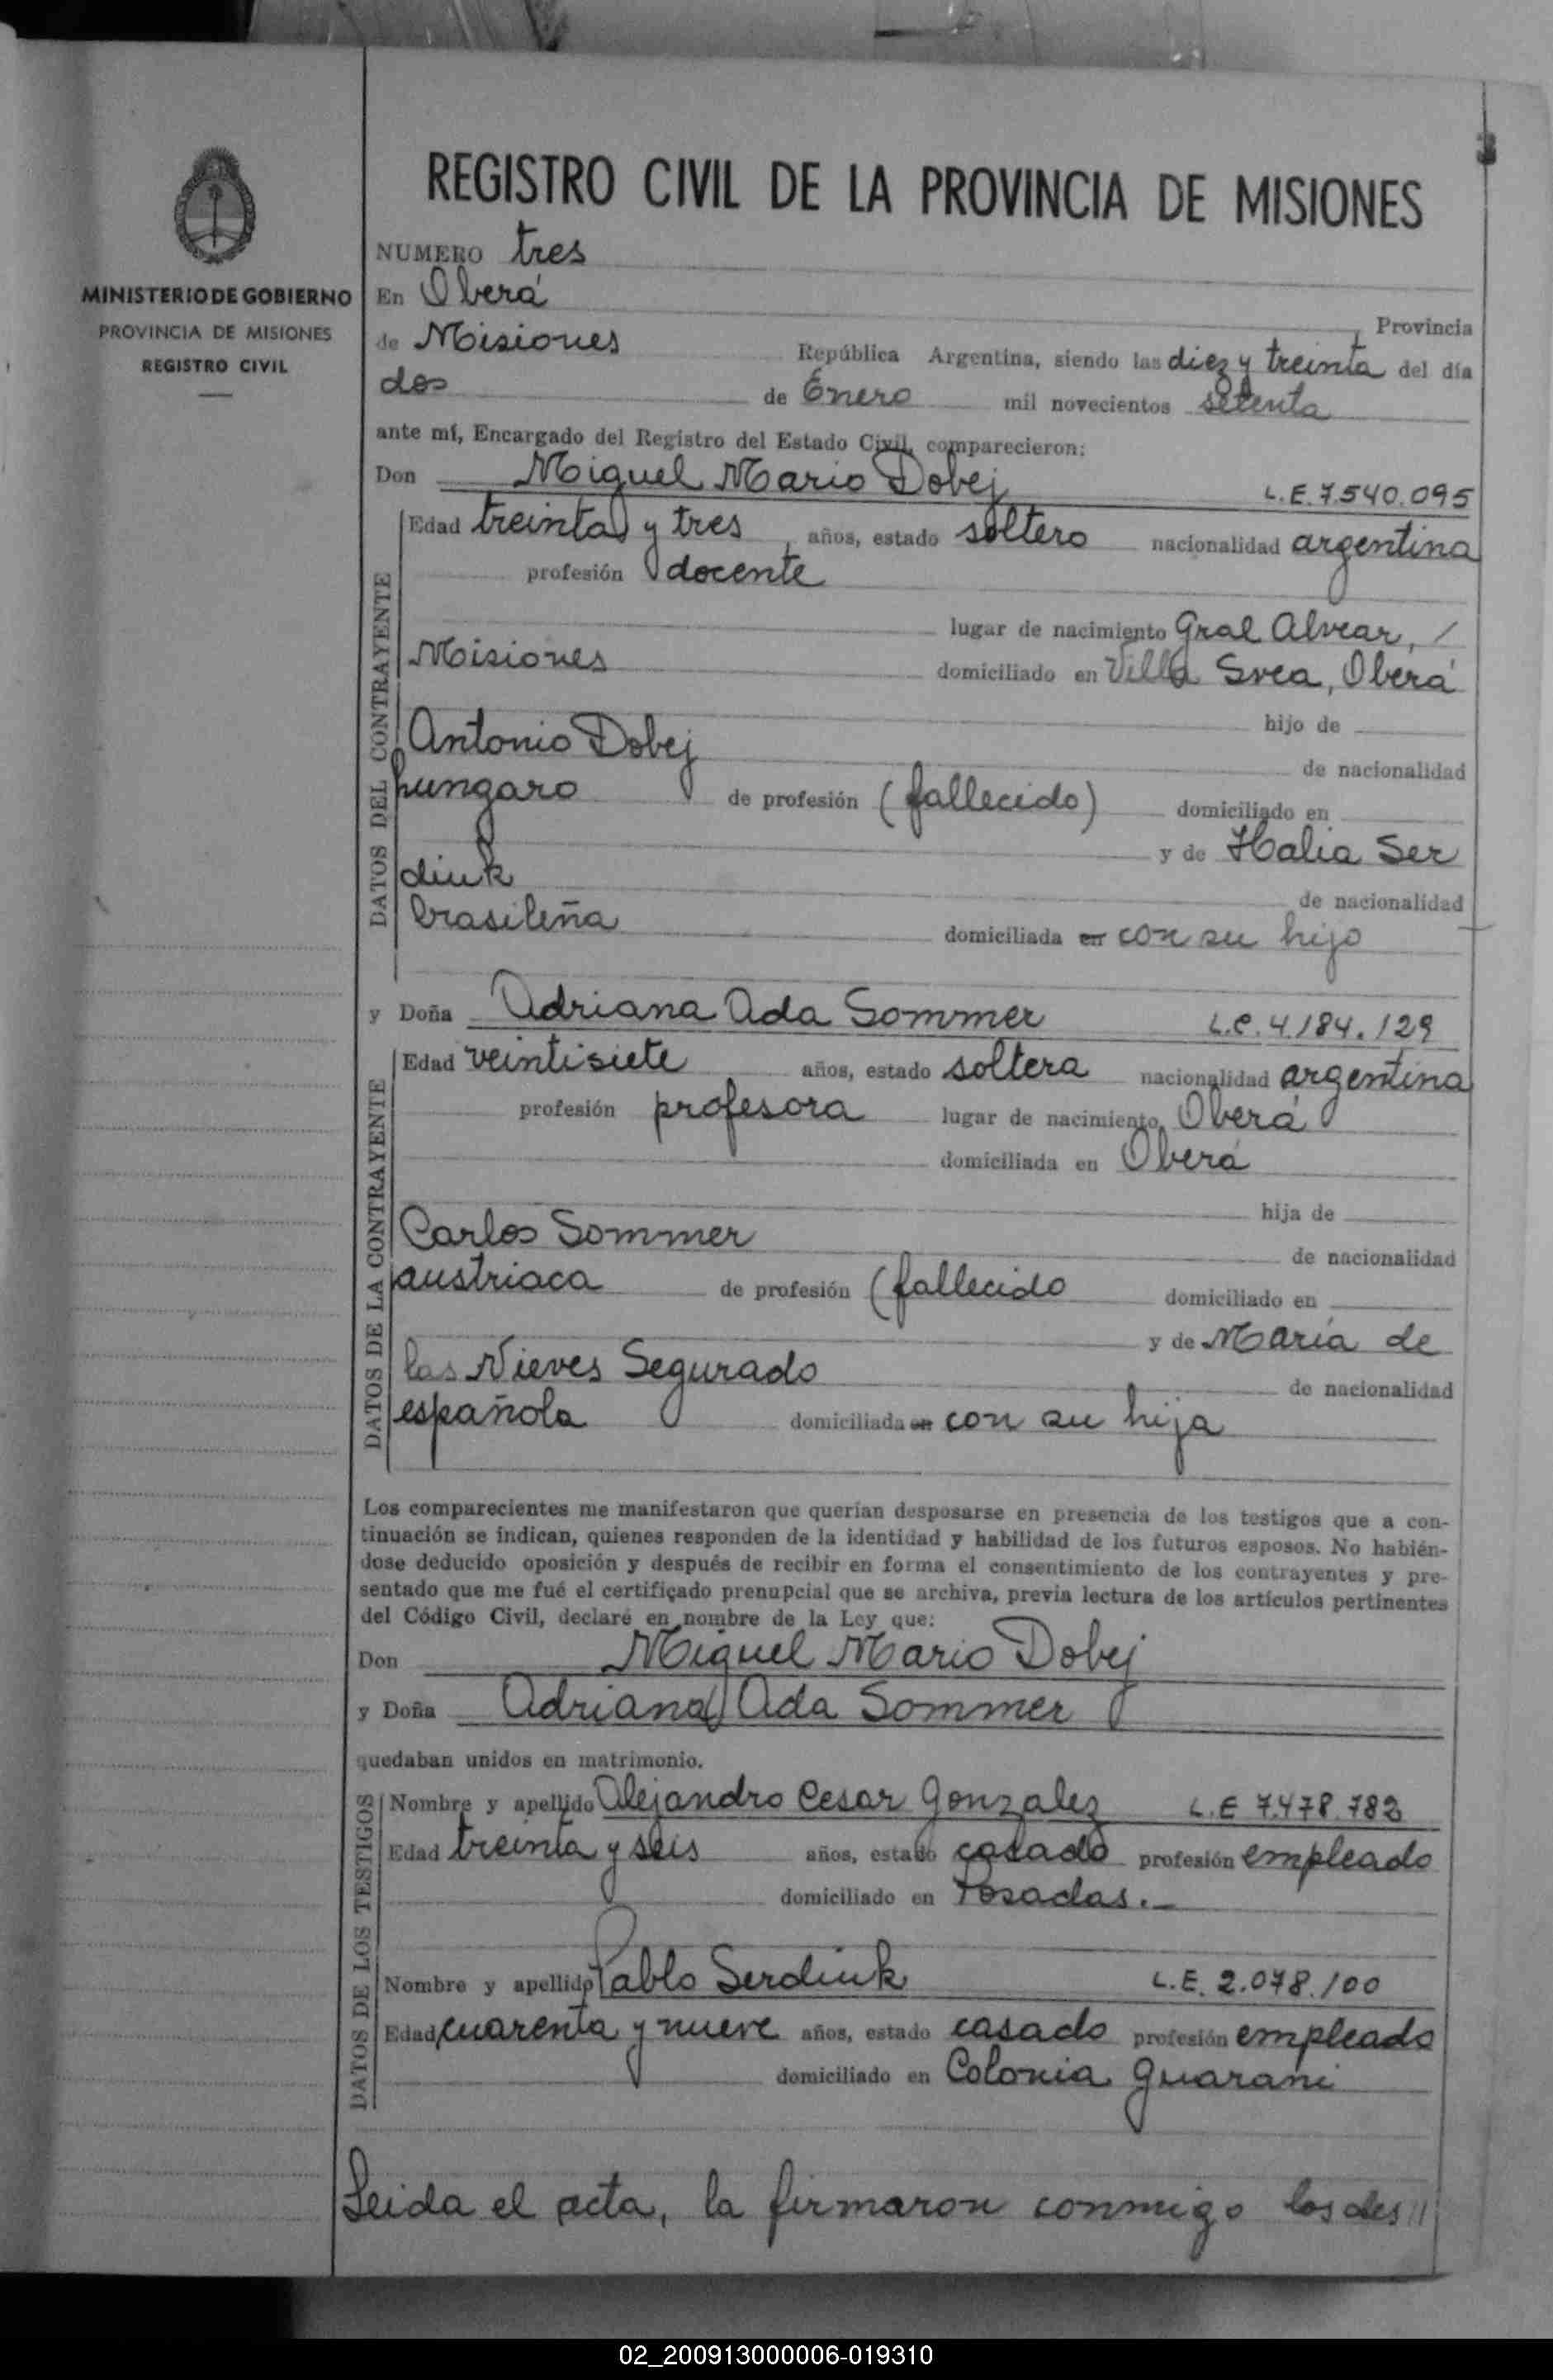 REGISTRO CIVIL DE LA PROVINCIA DE MISIONES
MINISTERIO DE GOBIERNO
PROVINCIA DE MISIONES
REGISTRO CIVIL
NUMERO tres
En Oberá
, Provincia
de Misiones República Argentina, siendo las diez y treinta del día
dos de Enero mil novecientos setenta
ante mí, Encargado del Registro del Estado Civil, comparecieron:
Don Miguel Mario Dobej L.E. 7.540.095
DATOS DEL CONTRAYENTE
Edad treinta y tres años, estado soltero nacionalidad argentina
profesión docente
lugar de nacimiento Gral Alvear, /
Misiones domiciliado en Villa Svea, Oberá
hijo de
Antonio Dobej de nacionalidad
hungaro de profesión (fallecido) domiciliado en
y de Halia Ser
diuk de nacionalidad
brasileña domiciliada en con su hijo
y Doña Adriana Ada Sommer L.C. 4.184.129
DATOS DE LA CONTRAYENTE
Edad veintisiete años, estado soltera nacionalidad argentina
profesión profesora lugar de nacimiento Oberá
domiciliada en Oberá
hija de
Carlos Sommer de nacionalidad
austriaca de profesión (fallecido domiciliado en
y de María de
las Nieves Segurado de nacionalidad
española domiciliada en con su hija
Los comparecientes me manifestaron que querían desposarse en presencia de los testigos que a con-
tinuación se indican, quienes responden de la identidad y habilidad de los futuros esposos. No habién-
dose deducido oposición y después de recibir en forma el consentimiento de los contrayentes y pre-
sentado que me fué el certificado prenupcial que se archiva, previa lectura de los artículos pertinentes
del Código Civil, declaré en nombre de la Ley que:
Don Miguel Mario Dobej
y Doña Adriana Ada Sommer
quedaban unidos en matrimonio.
DATOS DE LOS TESTIGOS
Nombre y apellido Alejandro Cesar Gonzalez L.E 7.478.782
Edad treinta y seis años, estado casado profesión empleado
domiciliado en Posadas.-
Nombre y apellido Pablo Serdiuk L.E. 2.078.100
Edad cuarenta y nueve años, estado casado profesión empleado
domiciliado en Colonia Guarani
Leida el acta, la firmaron conmigo los des //
02_200913000006-019310